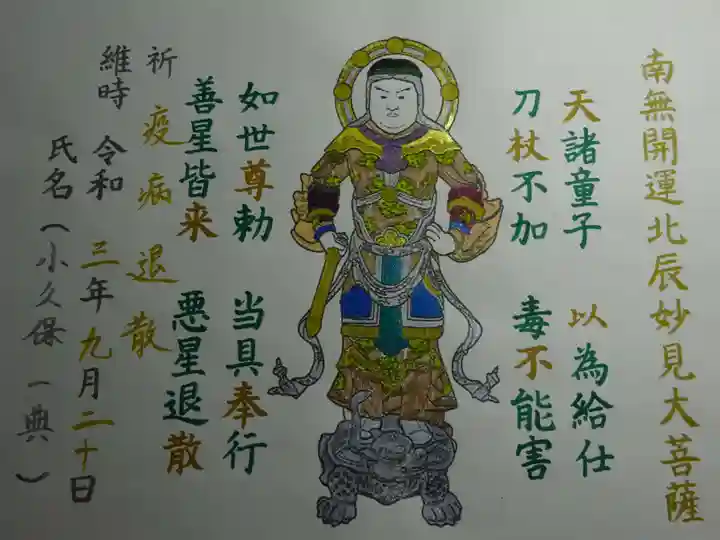 南無開運北辰妙見大菩薩
天諸童子 以為給仕
刀杖不加 毒不能害
如世尊勅 当具奉行
善星皆来 悪星退散
祈 疫病退散
維時 令和 三年九月二十日
氏名（小久保 一典）